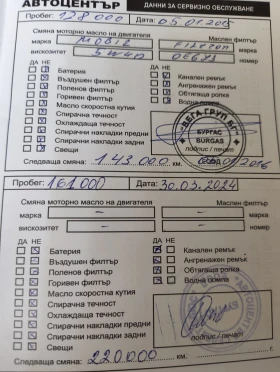 АВТОЦЕНТЪР ДАННИ ЗА СЕРВИЗНО ОБСЛУЖВАНЕ
Пробег: 128 000 Дата: 05.01.2015
Смяна моторно масло на двигателя Маслен филтър
марка MOBIL марка FILTRON
вискозитет 5W40
ДА НЕ ДА НЕ
Батерия Канален ремък
Въздушен филтър Ангренажен ремък
Поленов филтър Обтягаща ролка
Горивен филтър Водна помпа
Масло скоростна кутия
Спирачна течност
Охлаждаща течност
Спирачни накладки предни
Спирачни накладки задни
Свещи
БУРГАС
BURGAS
подпис / печат
Следваща смяна: 143 000 км. 2016
Пробег: 161 000 Дата: 30.03.2024
Смяна моторно масло на двигателя Маслен филтър
марка – марка –
вискозитет – –
ДА НЕ ДА НЕ
Батерия Канален ремък
Въздушен филтър Ангренажен ремък
Поленов филтър Обтягаща ролка
Горивен филтър Водна помпа
Масло скоростна кутия
Спирачна течност
Охлаждаща течност
Спирачни накладки предни
Спирачни накладки задни
Свещи
подпис / печат
Следваща смяна: 220 000 км. г.